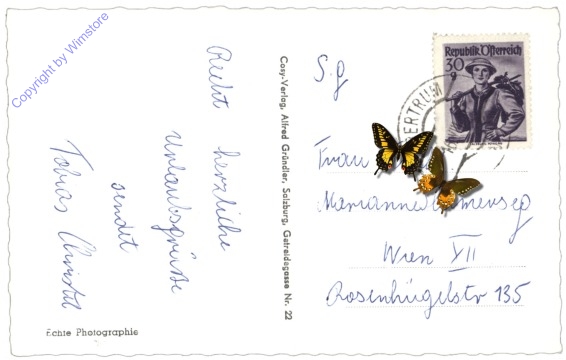 Copyright by Wimstore
Recht herzliche
Urlaubsgrüße
sendet
Tobias Christl
Echte Photographie
Cosy-Verlag, Alfred Gründler, Salzburg, Getreidegasse Nr. 22
30 g
Republik Österreich
S. g
Frau
Marianne
Wien XII
Rosenhügelstr 135